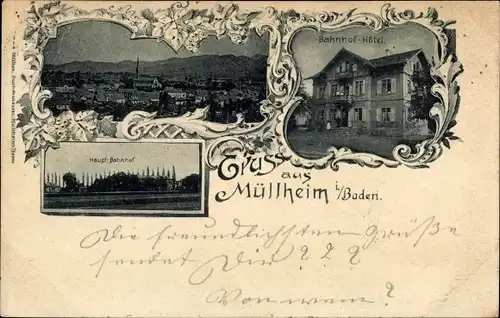 Bahnhof-Hôtel.
Haupt-Bahnhof
Gruss
aus
Müllheim i/Baden.
Die freundlichsten Grüße
sendet Dir ? ? ?
Von wem?